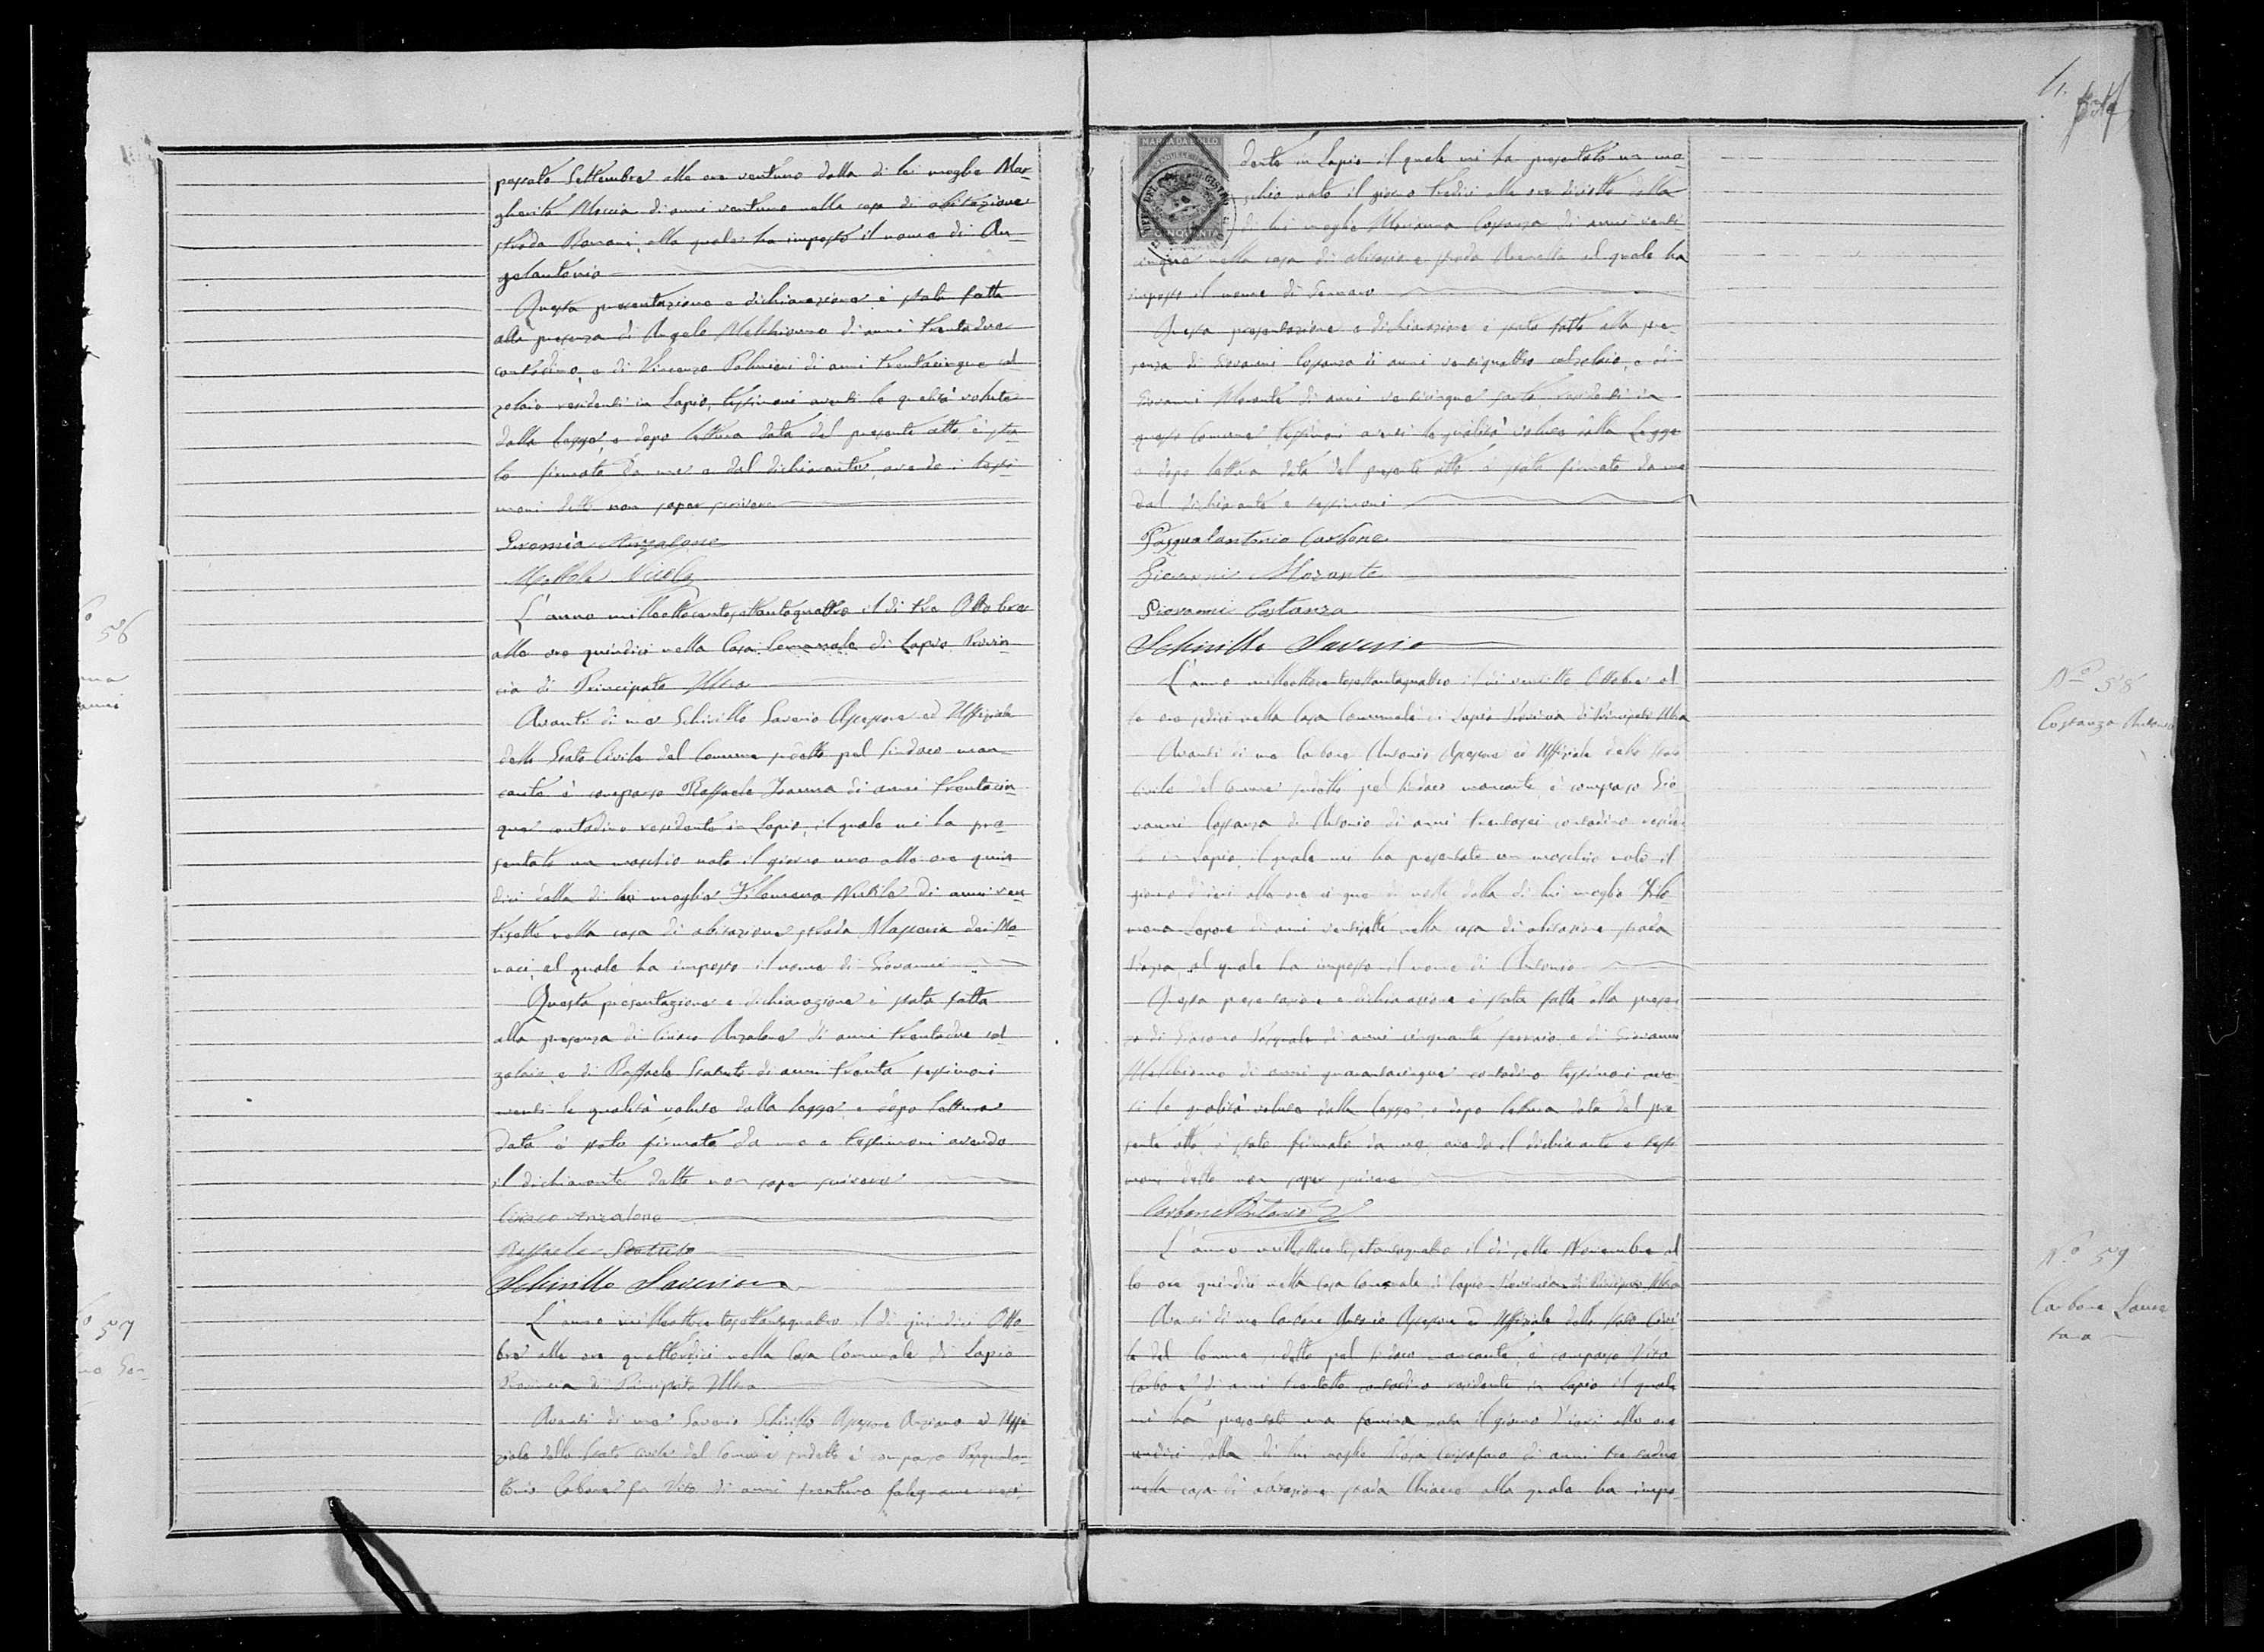 passato Settembre alle ore ventuno dalla di lui moglie Mar-
gherita Moccia di anni ventuno nella casa di abitazione
strada alla quale ha imposto il nome di An-
gelantonia
Questa presentazione e dichiarazione è stata fatta
alla presenza di Angelo Melchionno di anni trentadue
contadino, e di Vincenzo Palmieri di anni trentacinque cal-
zolaio residenti in Lapio, testimoni aventi le qualità volute
dalla Legge, e dopo lettura data del presente atto è sta-
to firmato da me e dal dichiarante, avendo i testi-
moni detto non saper scrivere
Anzalone
Nicola
L'anno milleottocentosettantaquattro il dì tre Ottobre
alle ore quindici nella Casa Comunale di Lapio Provin-
cia di Principato Ultra
Avanti di me Schirillo Saverio Assessore ed Uffiziale
dello Stato Civile del Comune sudetto pel Sindaco man-
cante è comparso Raffaele Ioanna di anni trentacin-
que contadino residente in Lapio, il quale mi ha pre-
sentato un maschio nato il giorno uno alle ore quin-
dici dalla di lui moglie Filomena di anni ven-
tisette nella casa di abitazione strada Masseria dei Mo-
naci, al quale ha imposto il nome di Giovanni
Questa presentazione e dichiarazione è stata fatta
alla presenza di Ciriaco Anzalone di anni trentadue cal-
zolaio, e di Raffaele Scatuto di anni trenta testimoni
aventi le qualità volute dalla legge, e dopo lettura
data è stato firmato da me e testimoni avendo
il dichiarante detto non saper scrivere
Ciriaco Anzalone
Raffaele Scatuto
Schirillo Saverio
L'anno milleottocentosettantaquattro il dì quindici Otto-
bre alle ore quattordici nella Casa Comunale di Lapio
Provincia di Principato Ultra
Avanti di me Saverio Schirillo Assessore Anziano ed Uffi-
ziale dello Stato Civile del Comune sudetto è comparso Pasqualan-
tonio Carbone fu Vito di anni trentuno falegname resi-
56
57
MARCA DA BOLLO
CINQUANTA
dente in Lapio il quale mi ha presentato un ma-
schio nato il giorno tredici alle ore diciotto dalla
di lui moglie Marianna Costanza di anni venti
cinque nella casa di abitazione strada al quale ha
imposto il nome di Gennaro
Questa presentazione e dichiarazione è stata fatta alla pre-
senza di Giovanni Costanza di anni ventiquattro calzolaio, e di
Giovanni Morante di anni venticinque sarto, residenti in
questo Comune, testimoni aventi le qualità volute dalla Legge
e dopo lettura data del presente atto è stato firmato da me
dal dichiarante e testimoni
Pasqualantonio Carbone
Giovanni Morante
Giovanni Costanza
Schirillo Saverio
L'anno milleottocentosettantaquattro il dì ventotto Ottobre al
le ore sedici nella Casa Comunale di Lapio Provincia di Principato Ultra
Avanti di me Carbone Antonio Assessore ed Uffiziale dello Stato
Civile del Comune sudetto pel Sindaco mancante, è comparso Gio
vanni Costanza di Antonio di anni trentasei contadino residen
te in Lapio, il quale mi ha presentato un maschio nato il
giorno d'ieri alle ore cinque di notte dalla di lui moglie Filo
mena Lepore di anni ventisette nella casa di abitazione strada
al quale ha imposto il nome di Antonio
Questa presentazione e dichiarazione è stata fatta alla presen
za di Pasquale di anni cinquanta ferraio, e di Giovanni
Melchionno di anni quarantacinque contadino testimoni aven
ti le qualità volute dalla legge, e dopo lettura data del pre
sente atto, è stato firmato da me, avendo il dichiarante e testi
moni detto non saper scrivere
Carbone Antonio
L'anno milleottocentosettantaquattro il dì sette Novembre al
le ore quindici nella Casa Comunale di Lapio Provincia di Principato Ultra
Avanti di me Carbone Antonio Assessore ed Uffiziale dello Stato Civi
le del Comune sudetto pel Sindaco mancante, è comparso Vito
Carbone di anni trentotto contadino residente in Lapio il quale
mi ha presentato una femina nata il giorno d'ieri alle ore
undici dalla di lui moglie Rosa di anni trentadue
nella casa di abitazione strada Chiaere alla quale ha impo-
No 58
Costanza Antonio
No 59
Carbone